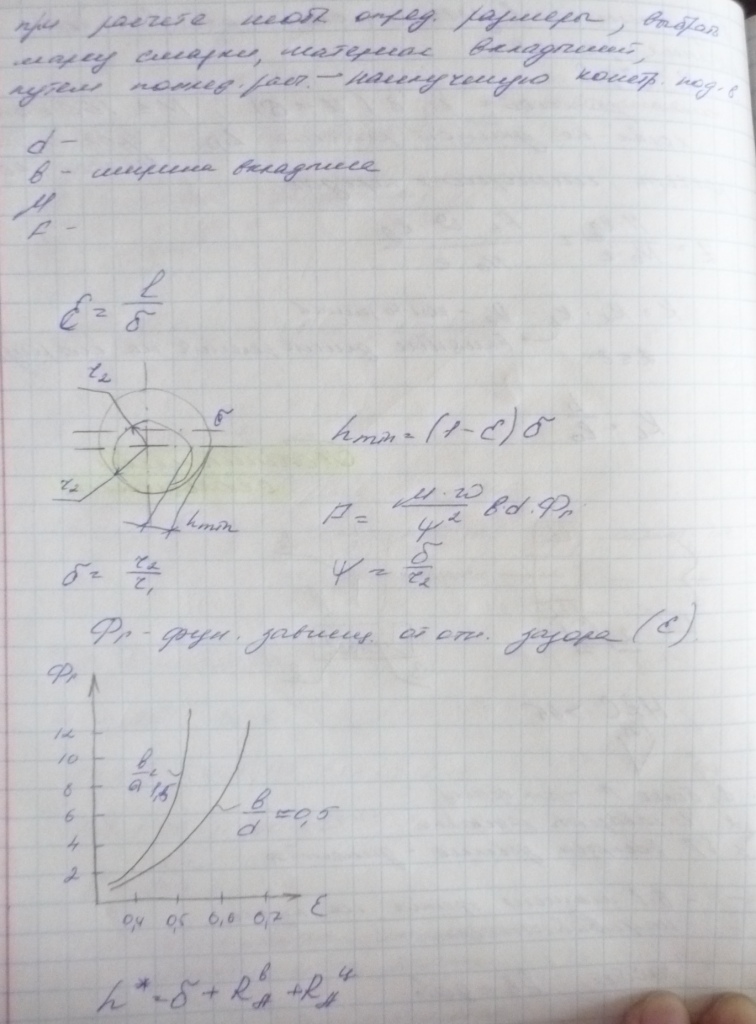 при расчете необх опред. размеры, выбрать
марку смазки, материал вкладышей,
путем послед. расч. — наилучшую констр. под-в
d -
в - ширина вкладыша
μ
F -
ε = l/δ
r₂
δ
hmin = (1-ε) δ
r₂
hmin
F = μ·ω/ψ² в.d.Фг
δ = r₂/r₁
ψ = δ/r₂
Фг - фун. зависящ. от отн. зазора (ε)
Фг
12
10
8
6
4
2
в/d = 1,5
в/d = 0,5
0,4 0,5 0,6 0,7 ε
h* = δ + Rᵇ + Rᶣ